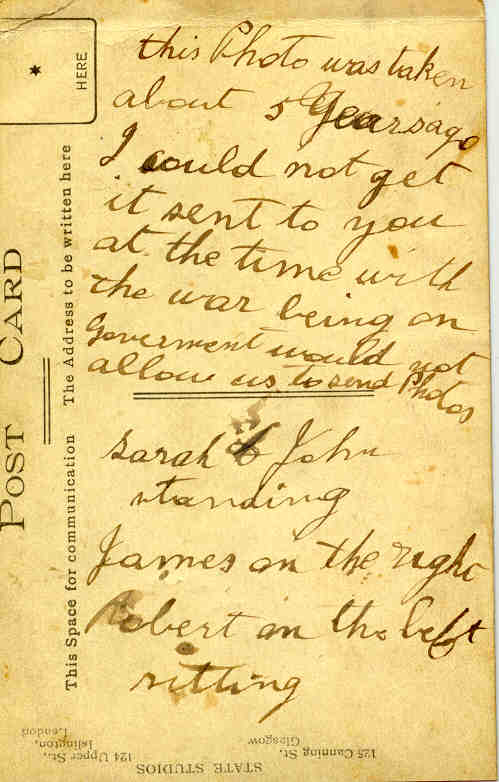 this Photo was taken
about 5 Years ago
I could not get
it sent to you
at the time with
the war being on
Goverment would not
allow us to send Photos
Sarah & John
standing
James on the right
Robert on the left
sitting
POST CARD
This Space for communication
The Address to be written here
HERE
STATE STUDIOS
124 Upper St.,
Islington,
London
125 Canning St.
Glasgow